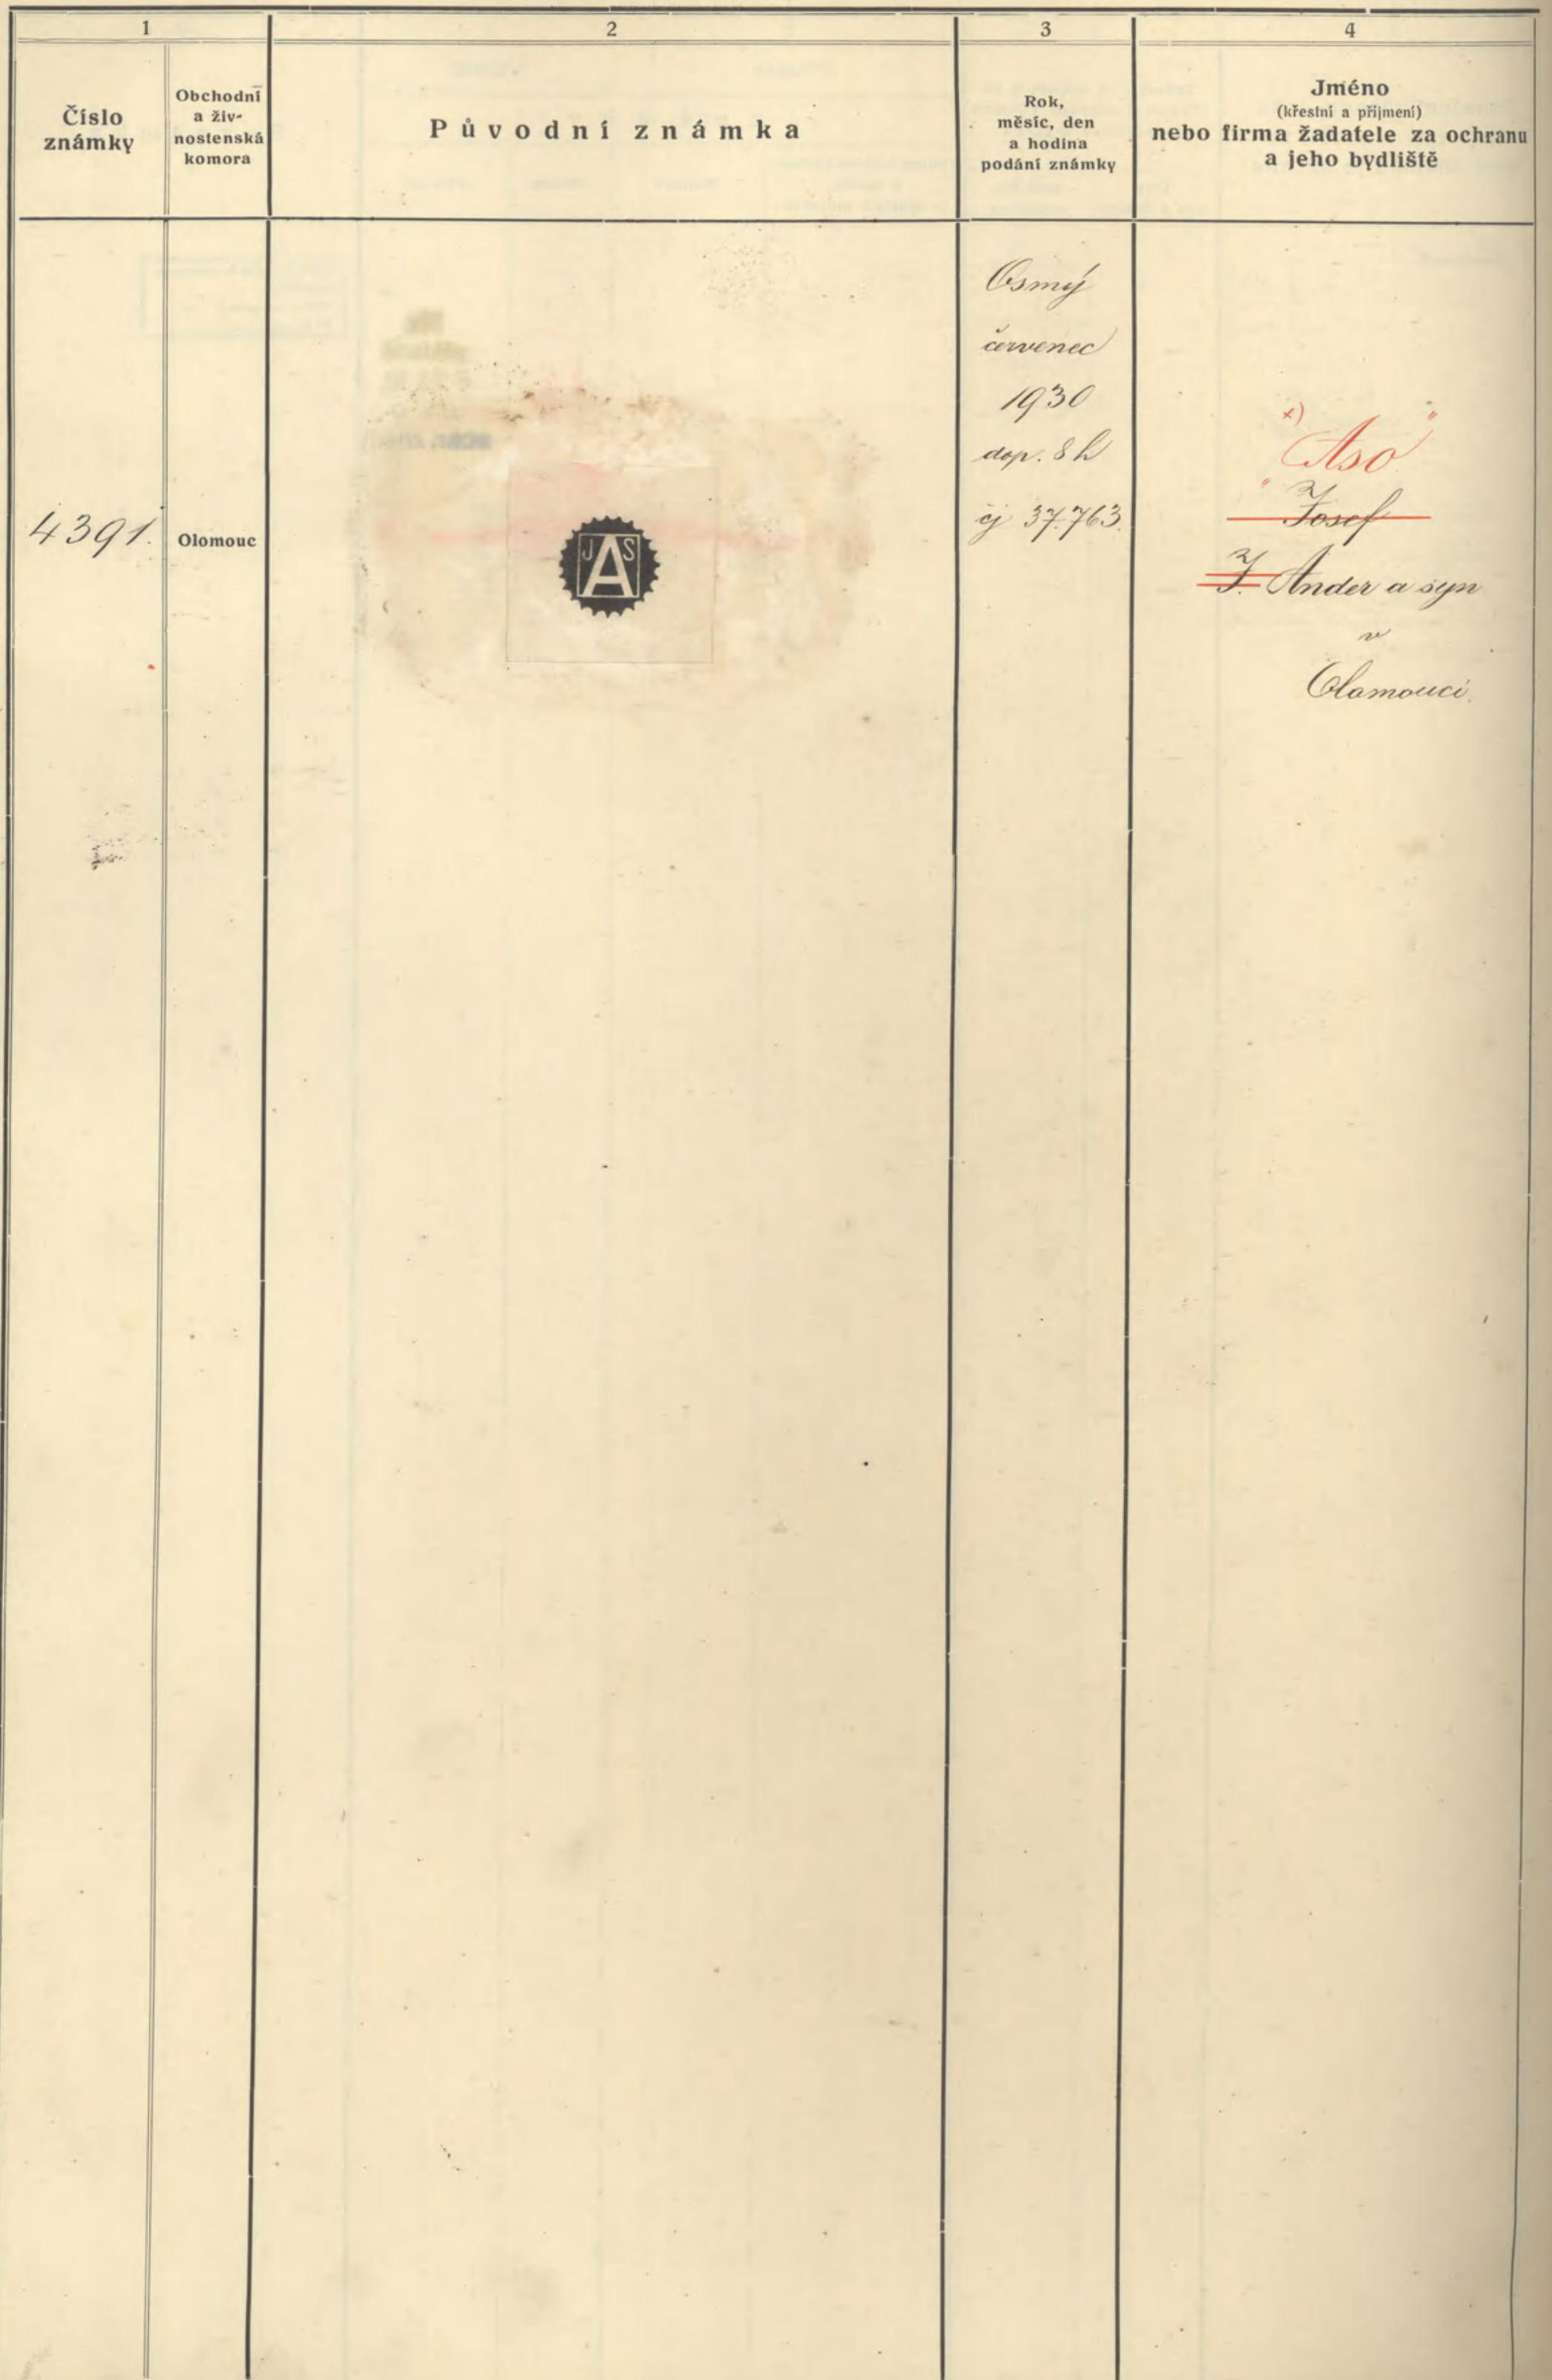 1
2
3
4
Číslo
známky
Obchodní
a živ-
nostenská
komora
Původní známka
Rok,
měsíc, den
a hodina
podání známky
Jméno
(křestní a příjmení)
nebo firma žadatele za ochranu
a jeho bydliště
4391.
Olomouc
J A S
Osmý
červenec
1930
dop. 8 h
čj 37.763.
x)
"Aso"
Josef
J. Ander a syn
v
Olomouci.